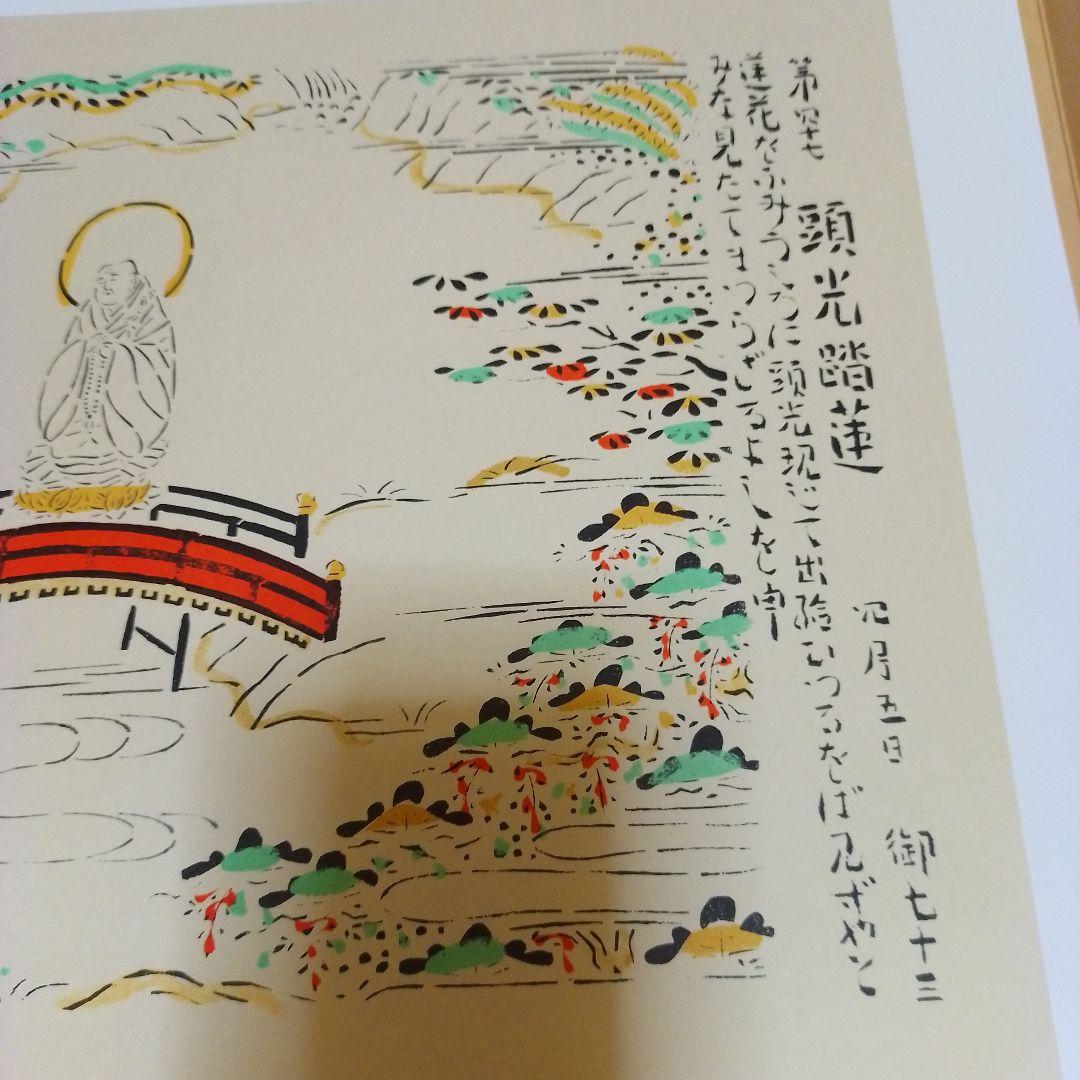 第四十七 頭光踏蓮 四月五日 御七十三
蓮花をふみうしろに頭光現じて出給ひつるをば見ずやと
みな見たてまつらざるよしをとす